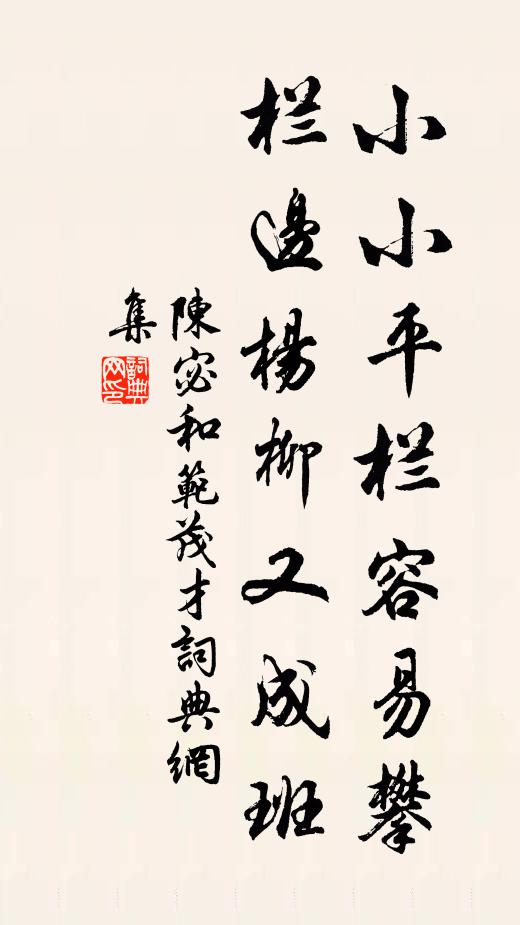 小小平栏容易攀
栏邊楊柳又成班
陳宓和範茂才詞典網
集
詞典
网印